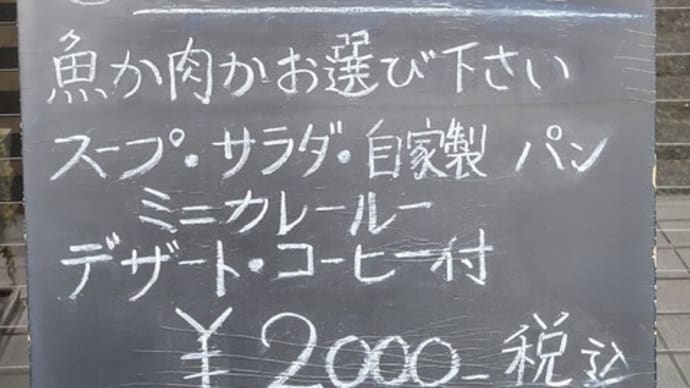 魚か肉かお選び下さい
スープ・サラダ・自家製 パン
ミニカレールー
デザート・コーヒー付
¥2000-税込